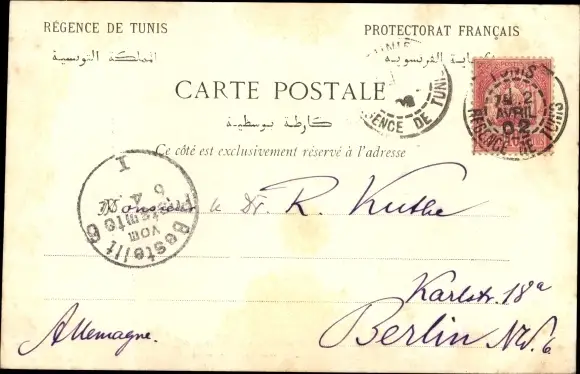 RÉGENCE DE TUNIS
PROTECTORAT FRANÇAIS
المملكة التونسية
حماية الفرنسويه
CARTE POSTALE
كارطة بوسطية
Ce côté est exclusivement réservé à l'adresse
TUNIS
RÉGENCE DE TUNIS
TUNIS
2
AVRIL
02
RÉGENCE DE TUNIS
Bestellt
vom
Postamte 6
6 4
I
Monsieur le Dr. R. Kuthe
Karlstr. 18a
Berlin NW. 6
Allemagne.